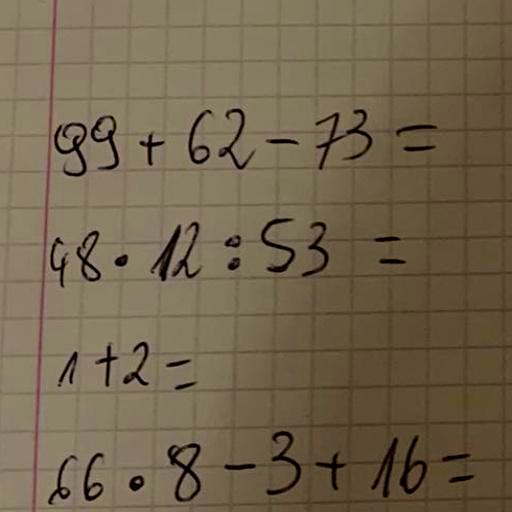 99 + 62 - 73 =
48 · 12 : 53 =
1 + 2 =
66 · 8 - 3 + 16 =